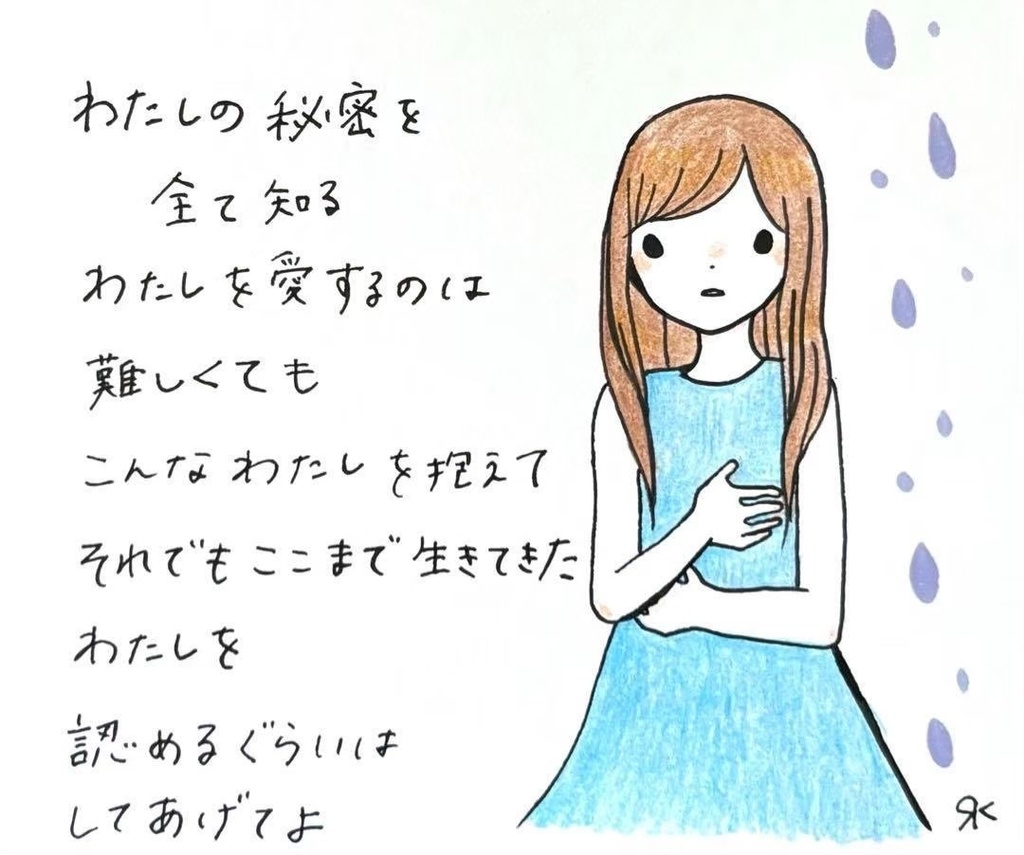 わたしの秘密を
全て知る
わたしを愛するのは
難しくても
こんなわたしを抱えて
それでもここまで生きてきた
わたしを
認めるぐらいは
してあげてよ